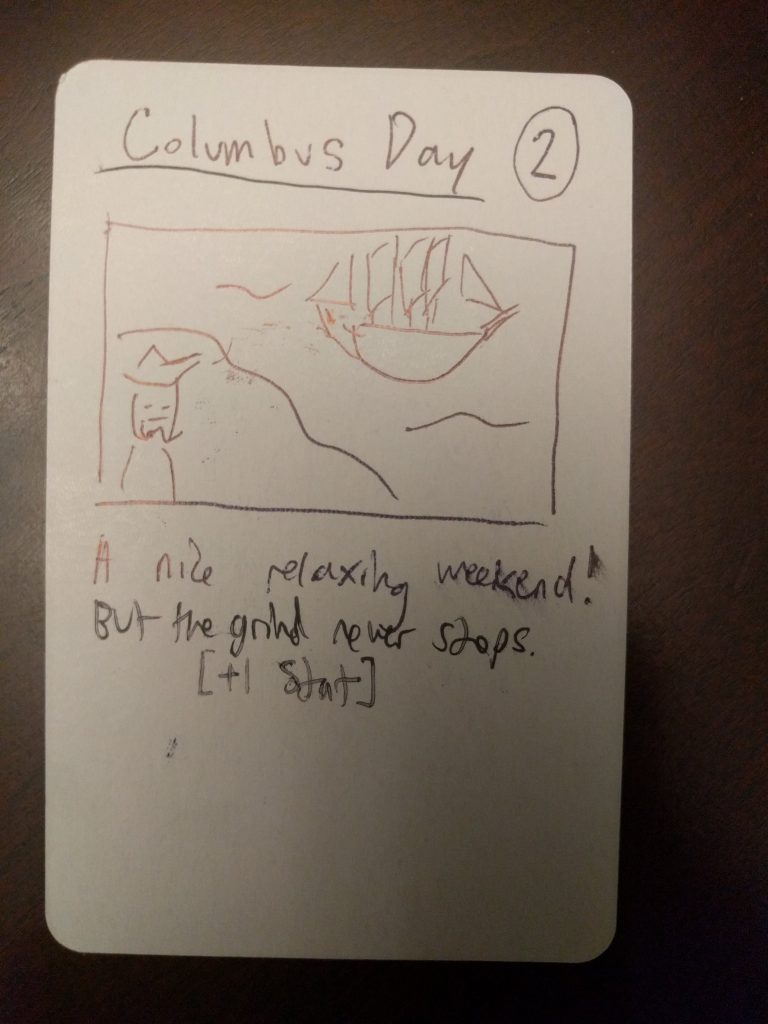 Columbus Day 2
A nice relaxing weekend!
But the grind never stops.
[+1 Stat]